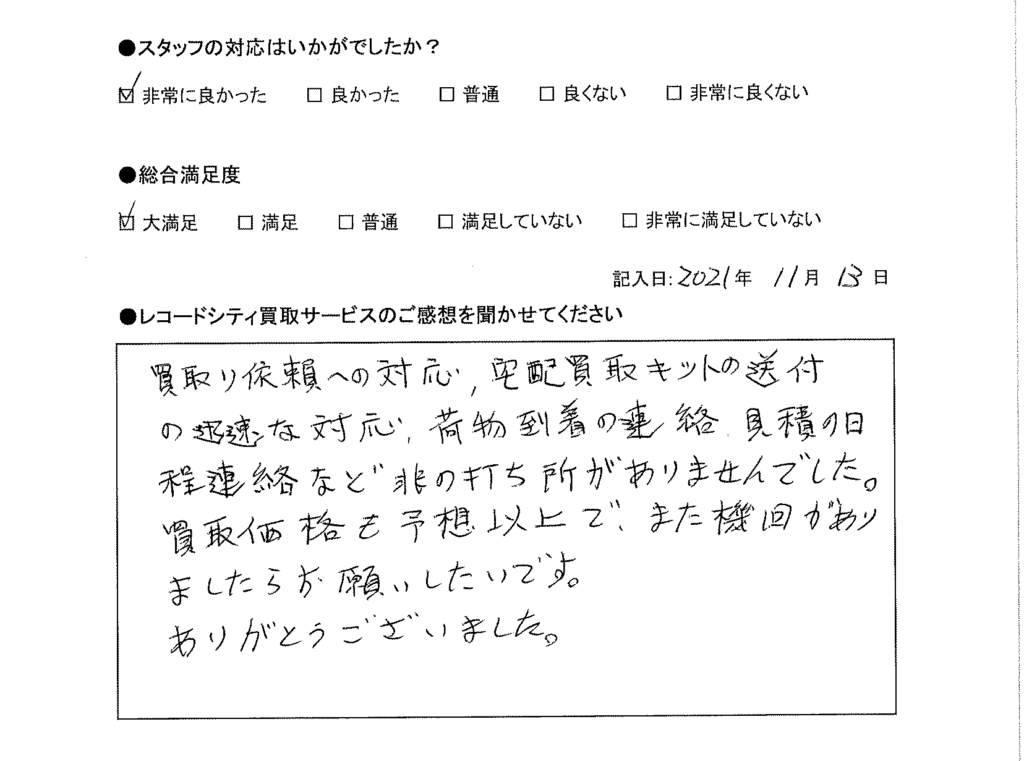 ●スタッフの対応はいかがでしたか？
☑ 非常に良かった □ 良かった □ 普通 □ 良くない □ 非常に良くない
●総合満足度
☑ 大満足 □ 満足 □ 普通 □ 満足していない □ 非常に満足していない
記入日:2021年 11月 13日
●レコードシティ買取サービスのご感想を聞かせてください
買取り依頼への対応,宅配買取キットの送付
の迅速な対応,荷物到着の連絡、見積の日
程連絡など非の打ち所がありませんでした。
買取価格も予想以上で、また機回があり
ましたらお願いしたいです。
ありがとうございました。